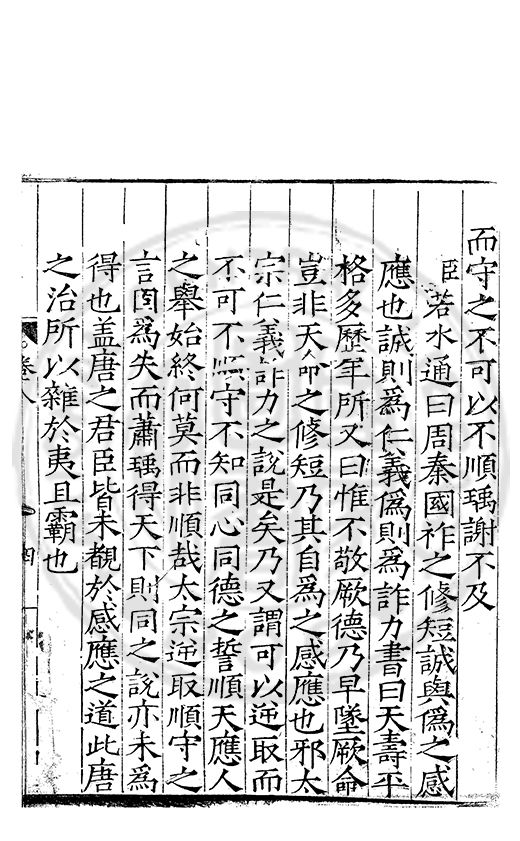 而守之不可以不順瑀謝不及
臣若水通曰周秦國祚之脩短誠與偽之感
應也誠則為仁義偽則為詐力書曰天壽平
格多歷年所又曰惟不敬厥德乃早墜厥命
豈非天命之脩短乃其自為之感應也邪太
宗仁義詐力之說是矣乃又謂可以逆取而
不可不順守不知同心同德之誓順天應人
之舉始終何莫而非順哉太宗逆取順守之
言固為失而蕭瑀得天下則同之說亦未為
得也盖唐之君臣皆未覩於感應之道此唐
之治所以雜於夷且霸也
卷八
四